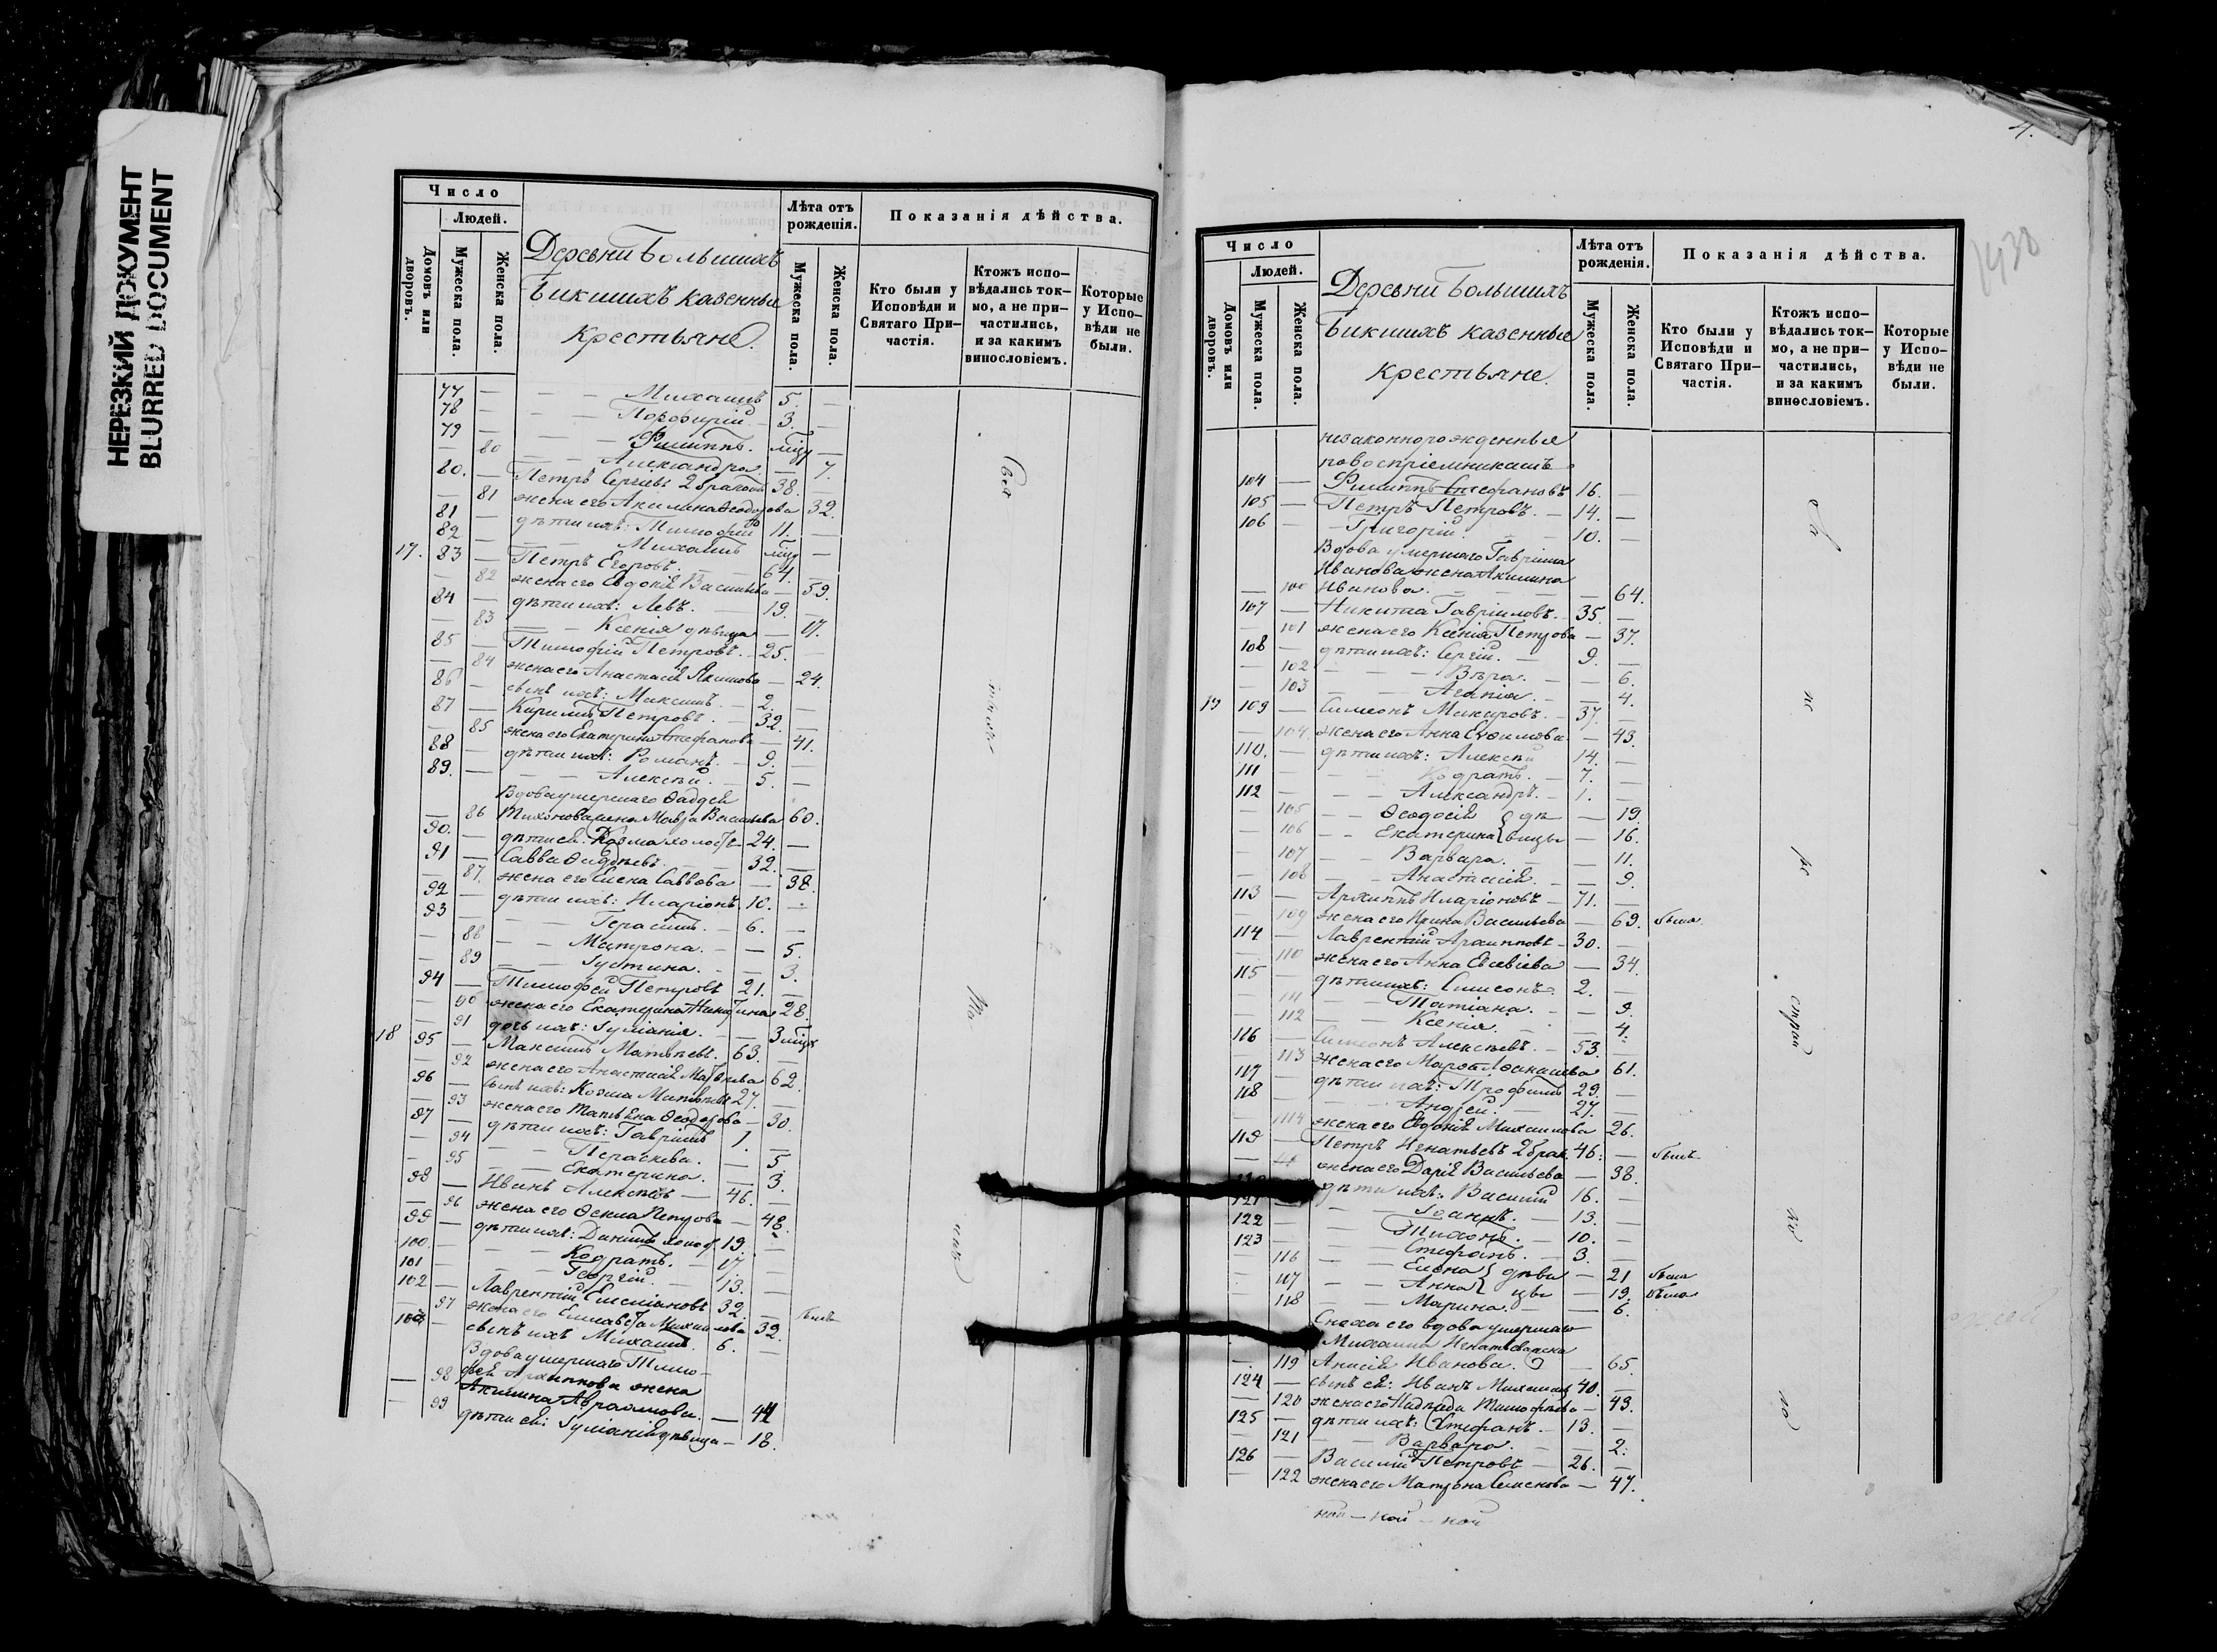 НЕРЕЗКИЙ ДОКУМЕНТ
BLURRED DOCUMENT
Число
Людей.
Домовъ или дворовъ.
Мужеска пола.
Женска пола.
Деревни Большихъ
Бикшихъ казенные
крестьяне.
Лѣта отъ рожденія.
Мужеска пола.
Женска пола.
Показанія дѣйства.
Кто были у Исповѣди и Святаго Причастія.
Ктожъ исповѣдались токмо, а не причастились, и за какимъ винословіемъ.
Которые у Исповѣди не были.
77 — Михаилъ 5. —
78 — Порфирій — 3. —
79 — Филиппъ.
— 80 Александра — 7.
80. — Петръ Сергѣевъ 2 бракомъ 38.
— 81 жена его Акилина Ѳеодорова 32.
81 — дѣти ихъ: Тимофей 11. —
82 — Михаилъ
17. 83 — Петръ Егоровъ. — 64. —
— 82 жена его Евдокія Васильева — 59.
84 — дѣти ихъ: Левъ. — 19. —
— 83 Ксенія дѣвица — 17.
85 — Тимофей Петровъ. — 25. —
— 84 жена его Анастасія Якимова — 24.
86 — сынъ ихъ: Максимъ. — 2. —
87 — Кирилъ Петровъ. — 32. —
— 85 жена его Екатерина Стефанова — 41.
88 — дѣти ихъ: Романъ. — 9. —
89. — Алексѣй. — 5. —
Вдова умершаго Ѳаддея
— 86 Тихонова жена Мавра Васильева 60.
90. — дѣти ея: Козма холостъ 24. —
91 — Савва Ѳаддѣевъ. — 32. —
— 87. жена его Елена Саввова — 38.
92 — дѣти ихъ: Иларіонъ. 10. —
93 — Герасимъ. — 6. —
— 88 Матрона. — 5.
— 89 Іустина. — 3.
94 — Тимофей Петровъ 21. —
— 90 жена его Екатерина Никитина 28.
— 91 дочь ихъ: Іуліанія. — 3
18 95 — Максимъ Матвѣевъ. 63. —
— 92 жена его Анастасія Матвѣева 62.
96 — сынъ ихъ: Козма 27. —
— 93 жена его Татьяна Ѳеодорова — 30.
97 — дѣти ихъ: Гавріилъ 1 —
— 94 Параскева. — 5.
— 95 Екатерина. — 3.
98 — Иванъ Алексѣевъ — 46. —
— 96 жена его Ѳекла Петрова — 48.
99 — дѣти ихъ: Даниилъ холост 19. —
100. — Кодратъ. — 17. —
101 — Георгій. — 13. —
102 — Лаврентій Емеліановъ 32. — былъ
— 97 жена его Елисавета Михайлова 32.
103 — сынъ ихъ Михаилъ. 6. —
Вдова умершаго Тимо-
— 98 фея Архиппова жена
Акилина Авраамова. — 44
— 99 дѣти ея: Іуліанія дѣвица — 18.
4.
1430
Число
Людей.
Домовъ или дворовъ.
Мужеска пола.
Женска пола.
Деревни Большихъ
Бикшихъ казенные
крестьяне.
Лѣта отъ рожденія.
Мужеска пола.
Женска пола.
Показанія дѣйства.
Кто были у Исповѣди и Святаго Причастія.
Ктожъ исповѣдались токмо, а не причастились, и за какимъ винословіемъ.
Которые у Исповѣди не были.
незаконнорожденные
по воспріемникамъ
104 — Филиппъ Стефановъ 16. —
105 — Петръ Петровъ. — 14. —
106 — Григорій. 10. —
Вдова умершаго Гавріила
Иванова жена Акилина
— 100 Иванова. — 64.
107 — Никита Гавріиловъ. 35. —
— 101 жена его Ксенія Петрова — 37.
108 — дѣти ихъ: Сергій. — 9. —
— 102 Вѣра. — 6.
— 103 Агапія — 4.
19 109 — Симеонъ Макаровъ. — 37. —
— 104. жена его Анна Евфимова — 43.
110. — дѣти ихъ: Алексѣй 14. —
111 — Кодратъ. — 7. —
112 — Александръ. — 1. —
— 105 Ѳеодосія } дѣ — 19.
— 106 Екатерина } вицы — 16.
— 107 Варвара. — 11.
— 108 Анастасія. — 9.
113 — Архиппъ Иларіоновъ — 71. —
— 109 жена его Ирина Васильева — 69. была
114 — Лаврентій Архипповъ — 30. —
— 110 жена его Анна Евсевіева — 34.
115 — дѣти ихъ: Симеонъ. 2. —
— 111 Татіана. — 9.
— 112 Ксенія. — 4.
116 — Симеонъ Алексѣевъ. — 53. —
— 113 жена его Марѳа Аѳанасьева 61.
117 — дѣти ихъ: Трофимъ 29. —
118 — Андрей. 27. —
— 114 жена его Евдокія Михаилова 26.
119 — Петръ Игнатьевъ 2 брак. 46. — былъ
— жена его Дарія Васильева — 38.
дѣти ихъ: Василій 16. —
121 — Іоаннъ. — 13. —
122 — Тихонъ. — 10. —
123 — Стефанъ. — 3. —
— 116 Елена } дѣви — 21 была
— 117 Анна } цы — 19. была
— 118 Марина. — 6.
Сноха его вдова умершаго
Михаила Игнатьева жена
— 119 Анисія Иванова. — 65.
124 — сынъ ея: Иванъ Михаиловъ 40. —
— 120 жена его Надежда Тимофѣева — 43.
125 — дѣти ихъ: Стефанъ. — 13. —
— 121 Варвара. — 2.
126 — Василій Петровъ — 26. —
— 122 жена его Матрона Семенова — 47.